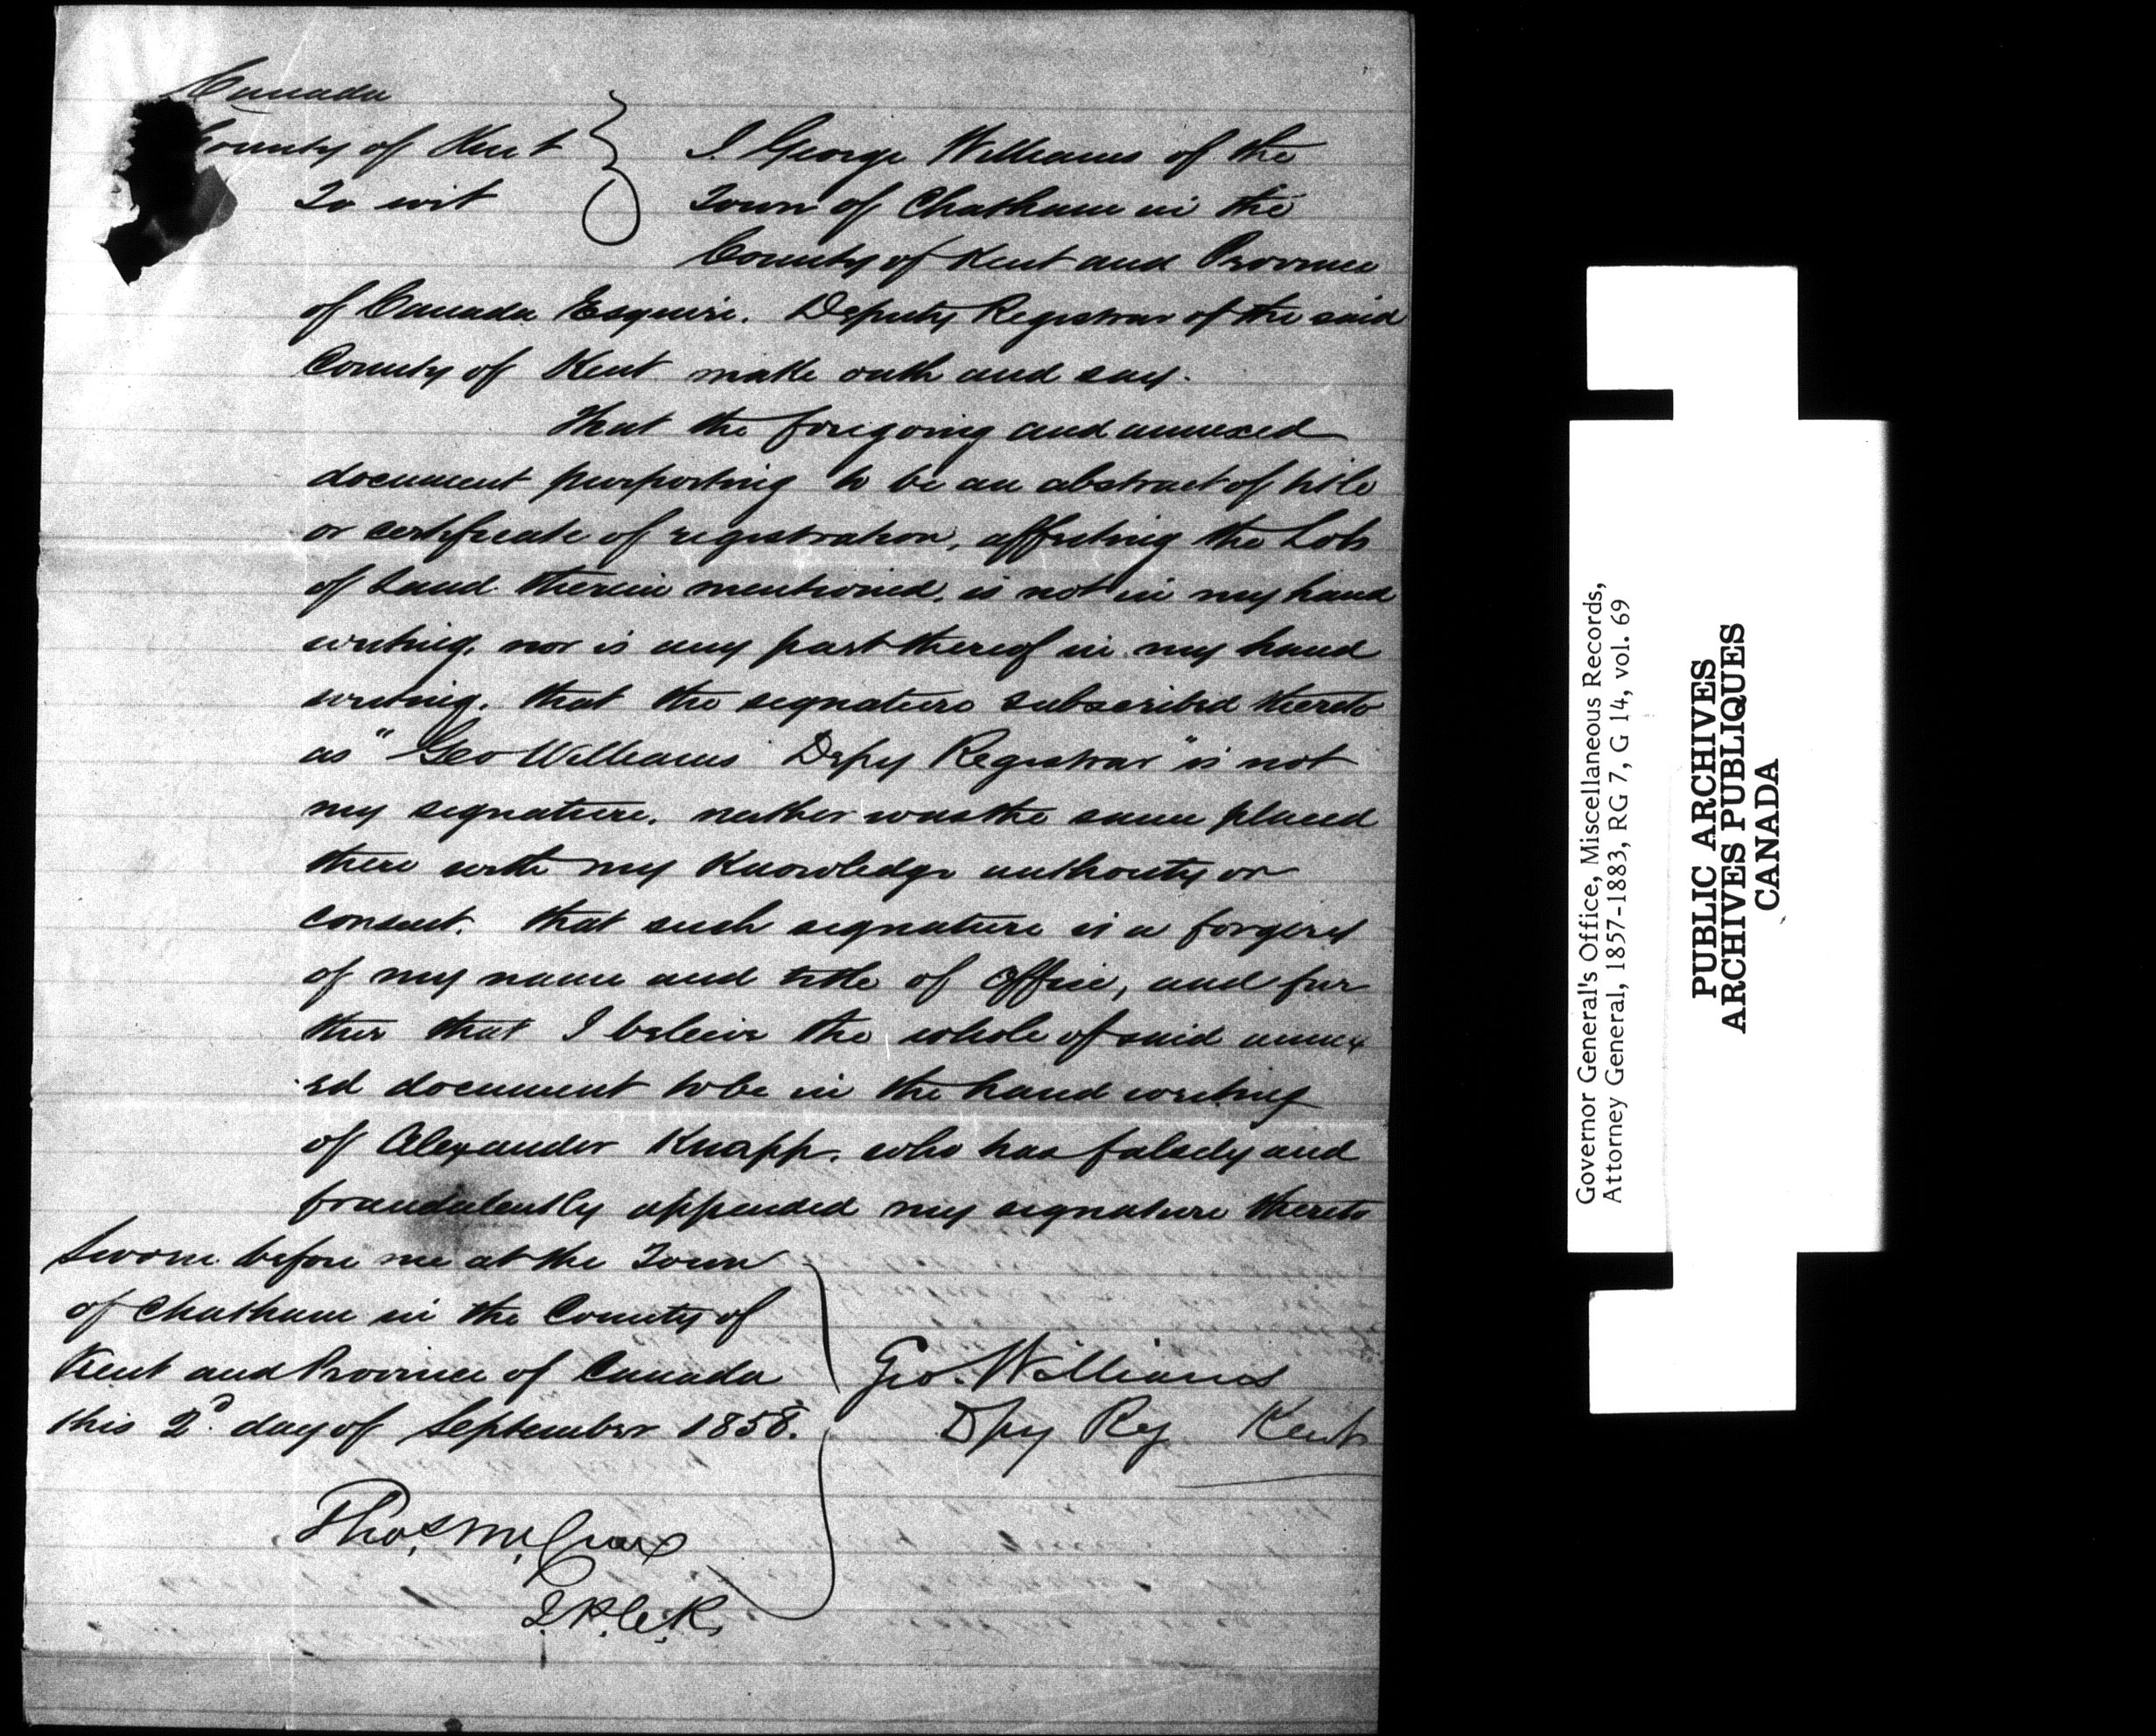 Canada
County of Kent
To wit
I. George Williams of the
Town of Chatham in the
County of Kent and Province
of Canada Esquire. Deputy Registrar of the said
County of Kent make oath and say.
that the foregoing and annexed
document purporting to be an abstract of title
or certificate of registration, affecting the Lots
of Land therein mentioned. is not in my hand
writing. nor is any part thereof in my hand
writing. that the signature subscribed thereto
as "Geo Williams Depy Registrar" is not
my signature. neither was the same placed
there with my knowledge authority or
consent. that such signature is a forgery
of my name and title of office, and fur
ther that I beleive the whole of said annex
ed document to be in the hand writing
of Alexander Knapp. who has falsely and
fraudulently appended my signature thereto
Sworn before me at the Town
of Chatham in the County of
Kent and Province of Canada
this 2d. day of September 1858.
Geo. Williams
Dpy Reg Kent
Thos. McCrae
J.P.C.K.
Governor General's Office, Miscellaneous Records,
Attorney General, 1857-1883, RG 7, G 14, vol. 69
PUBLIC ARCHIVES
ARCHIVES PUBLIQUES
CANADA